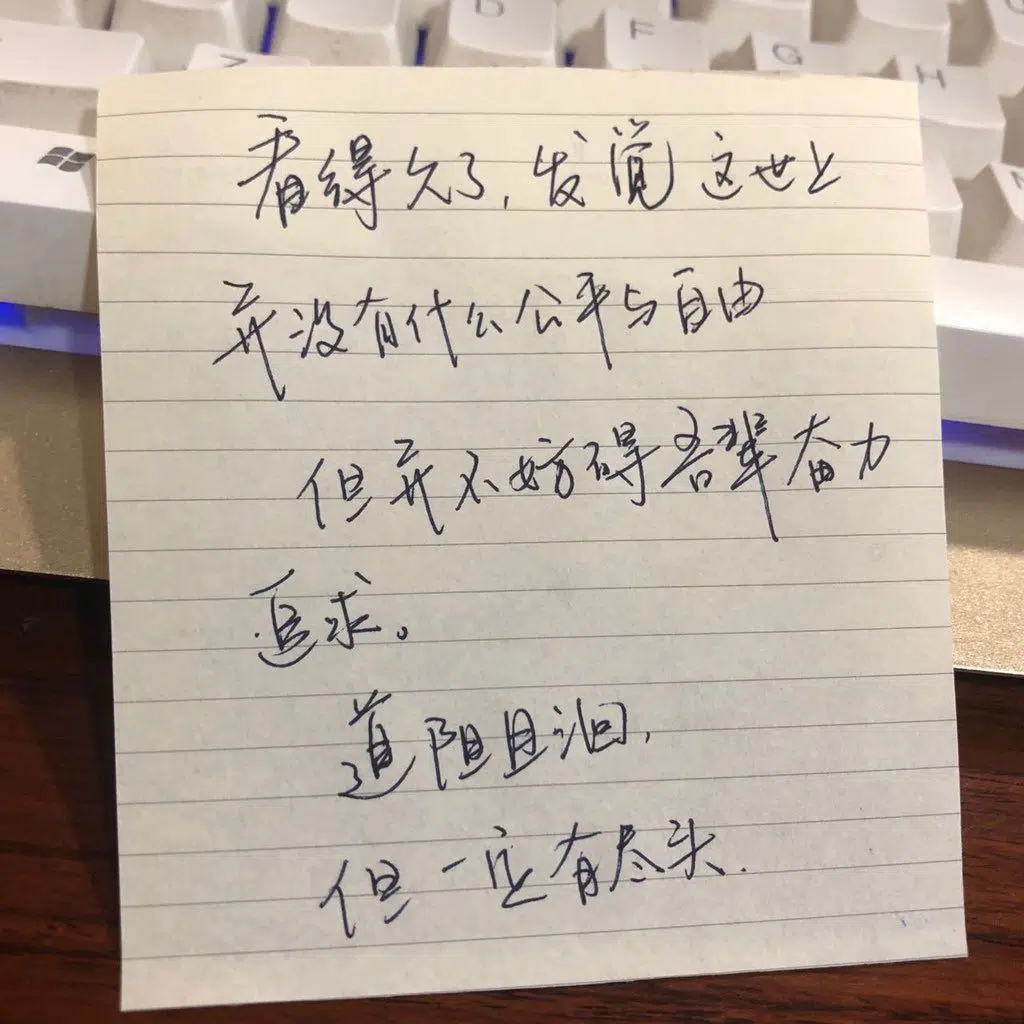 D
F
G
H
Z
看得久了,发觉这世上
并没有什么公平与自由
但并不妨碍吾辈奋力
追求。
道阻且洄,
但一定有尽头.